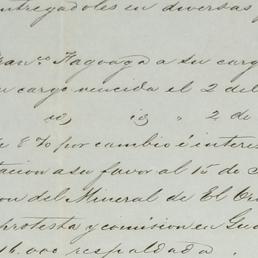 ntregadoles en diversas
Fran.co Fagoaga a su carg
u cargo vencida el 2 del
id, id " 2 de
e 8% por cambio é interes
tacion a su favor al 15 de
on del Mineral de El Or
protesta y comision en Gu
16.000 respaldada